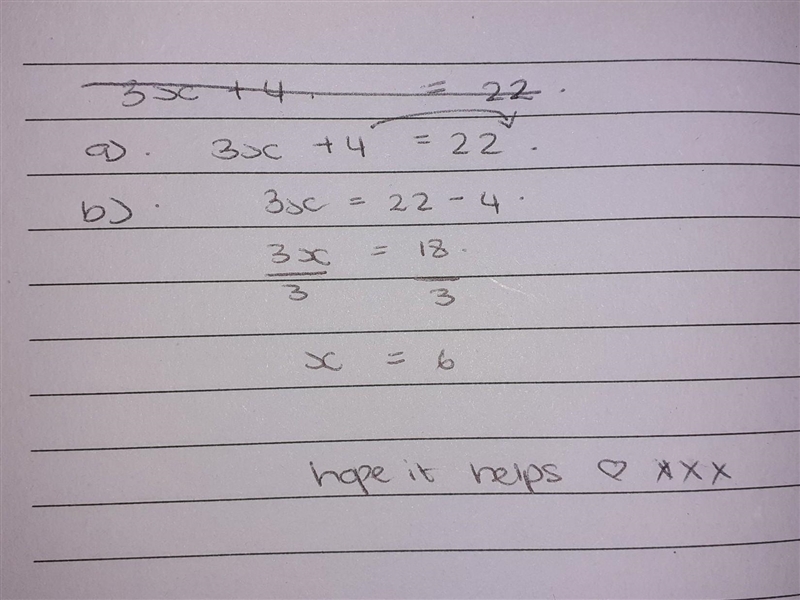 3x + 4. = 22.
a). 3x + 4 = 22.
b). 3x = 22 - 4.
3x = 18.
3 3
x = 6
hope it helps ♡ xxx